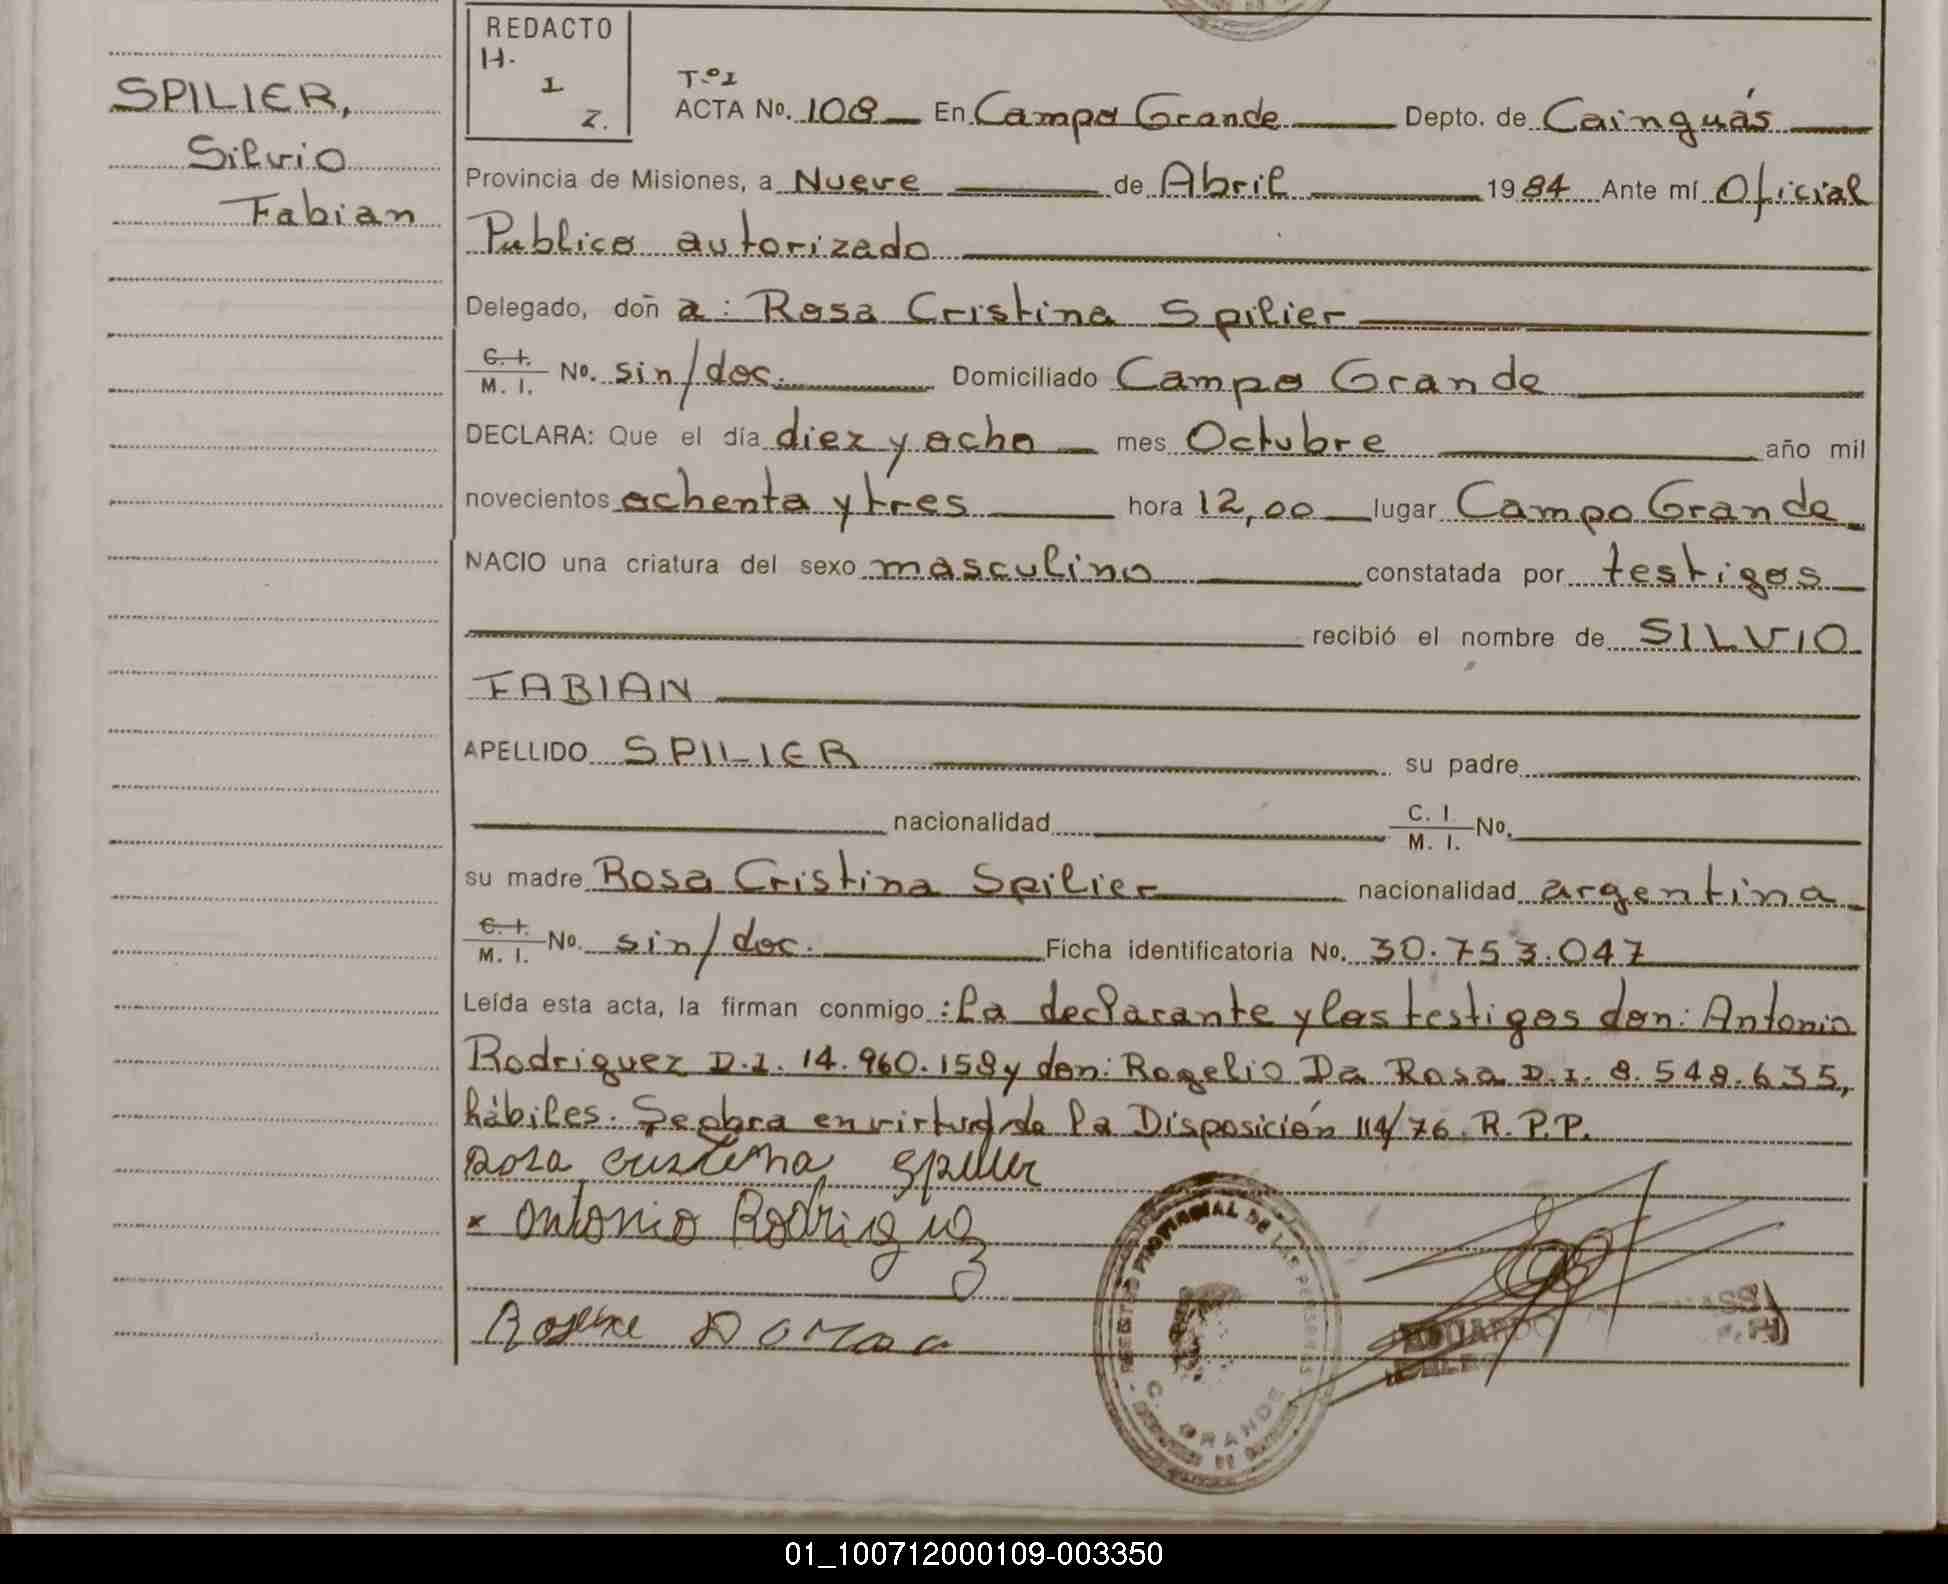 REDACTO
H.
I
Z.
SPILIER,
Silvio
Fabian
T.º I
ACTA No. 108 En Campo Grande Depto. de Cainguás
Provincia de Misiones, a Nueve de Abril 1984 Ante mí Oficial
Publico autorizado
Delegado, doñ a: Rosa Cristina Spilier
C. I. / M. I. No. sin/doc. Domiciliado Campo Grande
DECLARA: Que el día diez y ocho mes Octubre año mil
novecientos ochenta y tres hora 12,00 lugar Campo Grande
NACIO una criatura del sexo masculino constatada por testigos
recibió el nombre de SILVIO
FABIAN
APELLIDO SPILIER su padre
nacionalidad C. I. / M. I. No.
su madre Rosa Cristina Spilier nacionalidad argentina
C. I. / M. I. No. sin/doc. Ficha identificatoria No. 30.753.047
Leída esta acta, la firman conmigo: la declarante y los testigos don: Antonio
Rodriguez D.I. 14.960.158 y don: Rogelio Da Rosa D.I. 8.548.635,
hábiles. Se obra en virtud de la Disposición 114/76 R.P.P.
Rosa Cristina Spilier
x Antonio Rodriguez
REGISTRO PROVINCIAL DE LAS PERSONAS
C. GRANDE
01_100712000109-003350